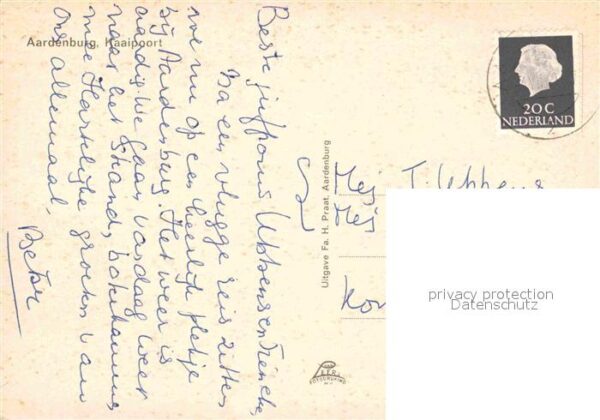 Aardenburg, Kaaipoort
Beste juffrouw Ubbens en Trendie,
Na een vlugge reis zitten
we nu op een heerlijk plekje
bij Aardenburg. Het weer is
aardig. We gaan vandaag weer
naar het strand,
Hartelijke groeten van
ons allemaal.
Betsy
Uitgave Fa. H. Praat, Aardenburg
20 C
NEDERLAND
Mej. T. Ubbens
Mej
privacy protection
Datenschutz